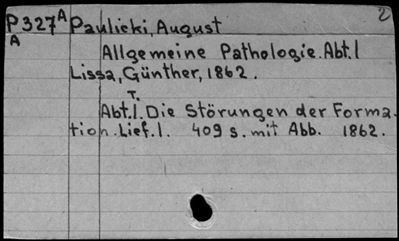 P327A Paulicki, August 2
A
Allgemeine Pathologie. Abt.1
Lissa, Günther, 1862.
T.
Abt.1. Die Störungen der Forma-
tion. Lief.1. 409 s. mit Abb. 1862.